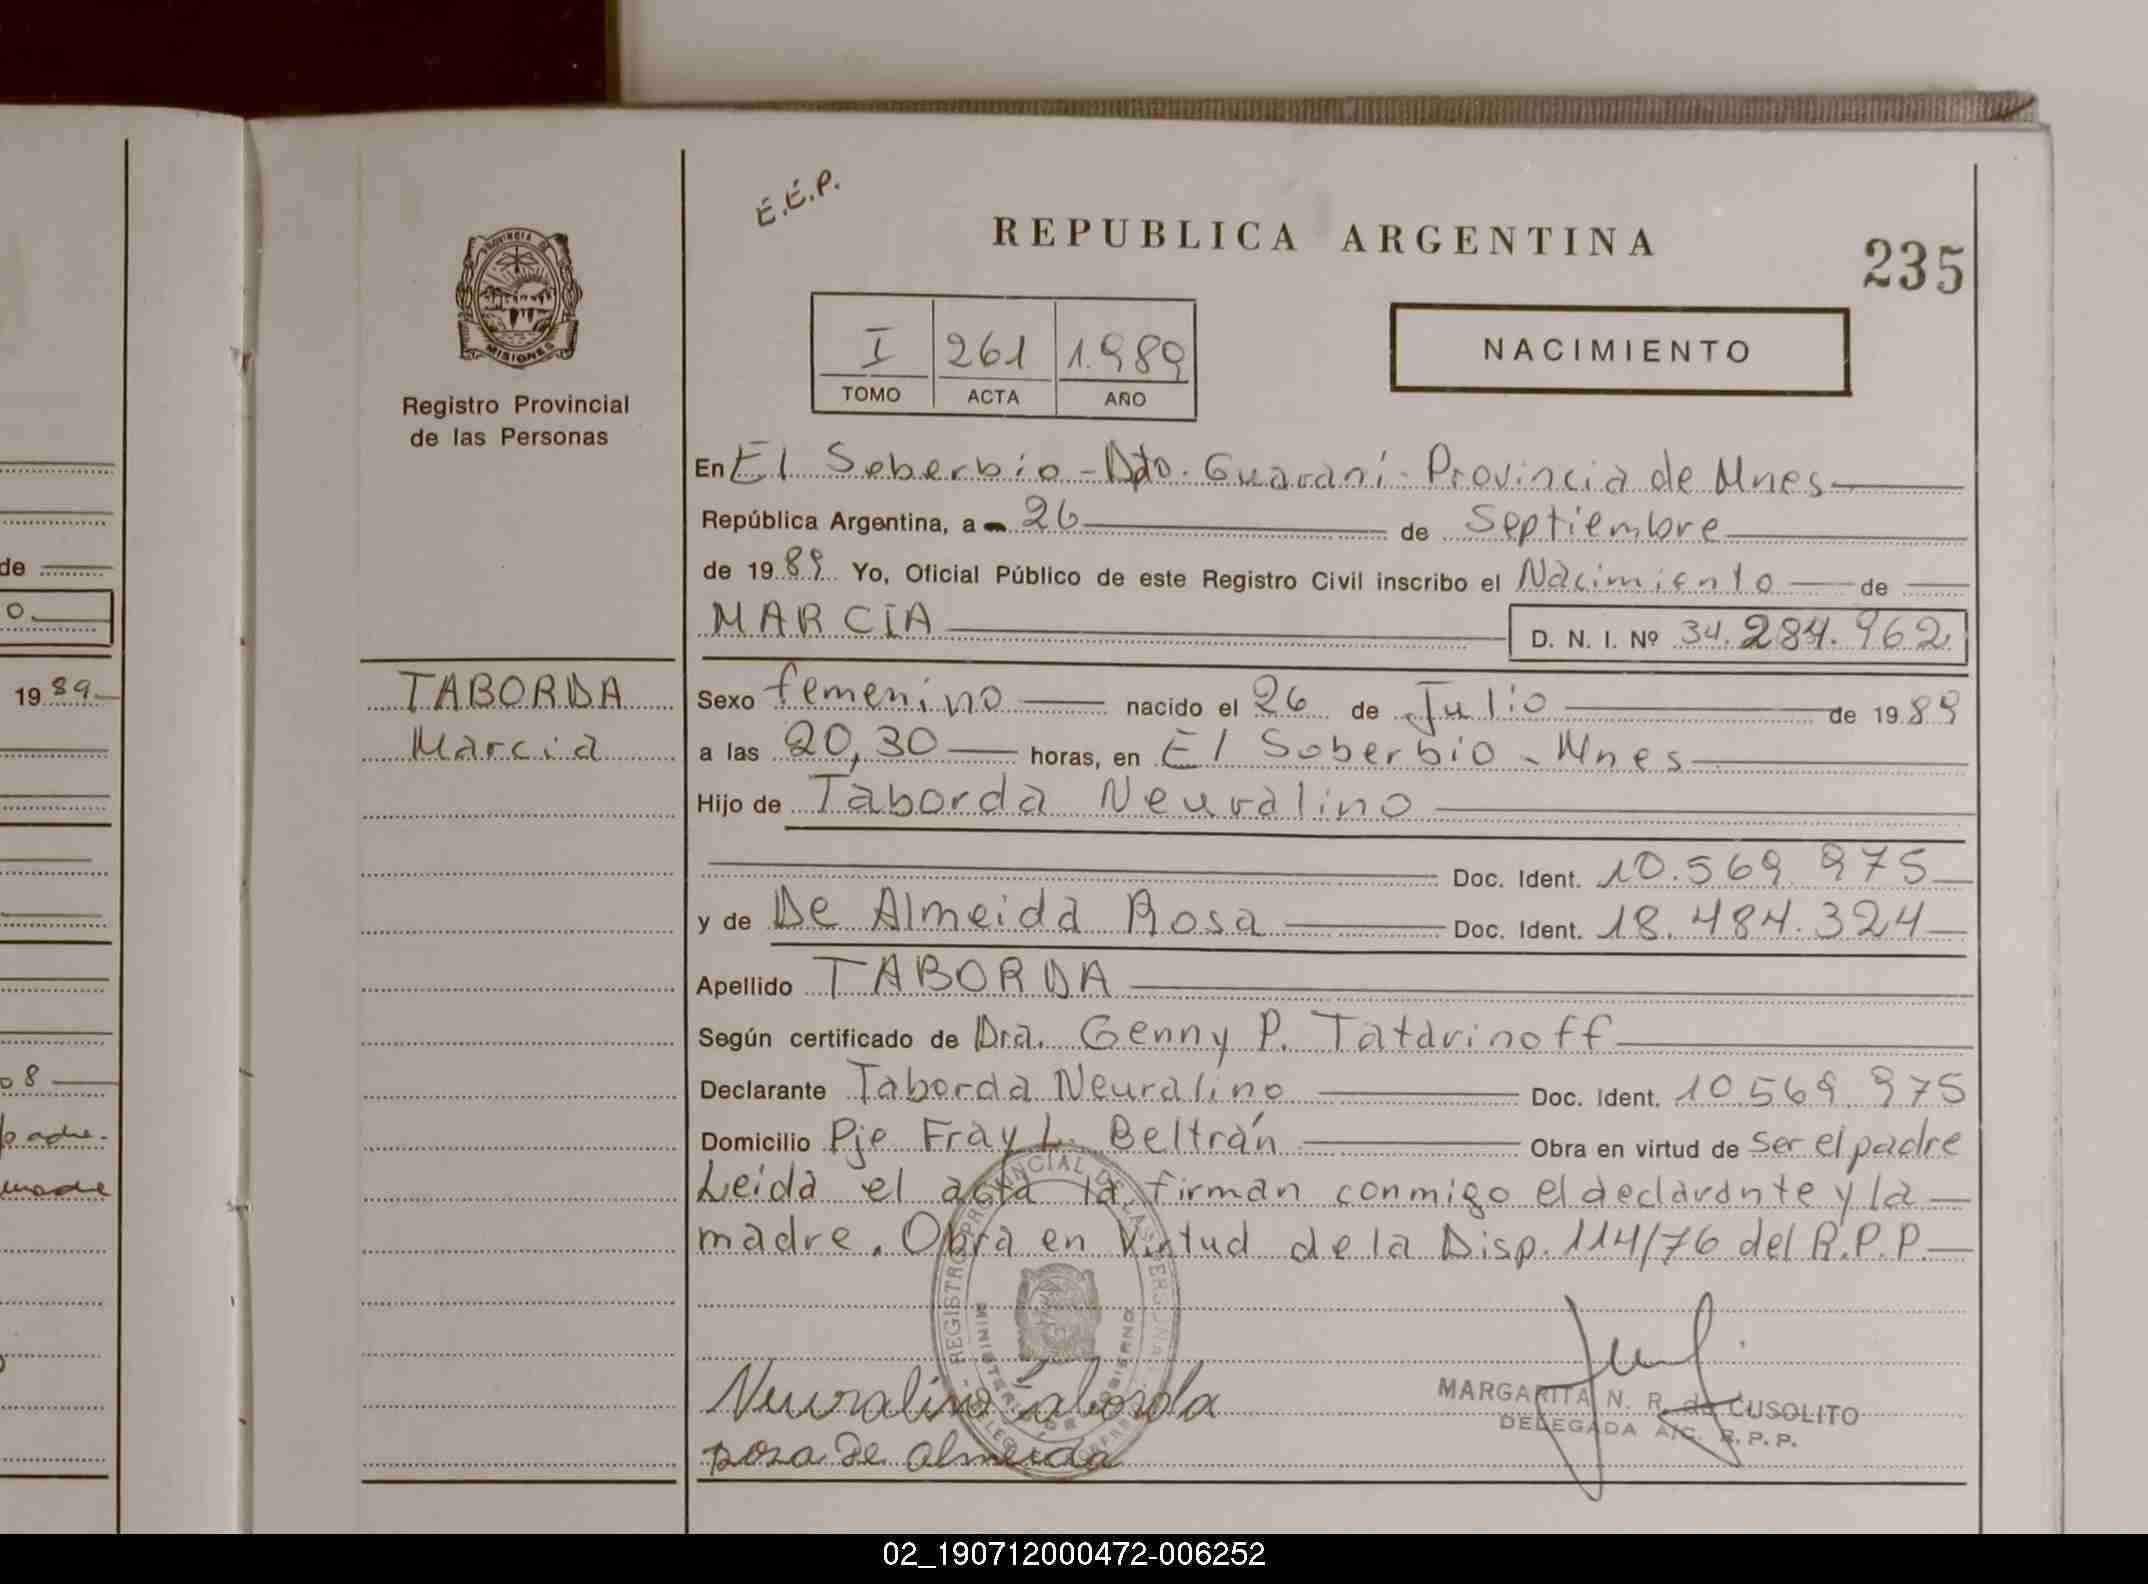 E.E.P.
REPUBLICA ARGENTINA
235
PROVINCIA DE
MISIONES
Registro Provincial
de las Personas
I 261 1.989
TOMO ACTA AÑO
NACIMIENTO
En El Soberbio - Dpto. Guaraní - Provincia de Mnes
República Argentina, a 26 de Septiembre
de 1989 Yo, Oficial Público de este Registro Civil inscribo el Nacimiento de
MARCIA D. N. I. Nº 34.284.962
TABORDA
Marcia
Sexo femenino nacido el 26 de Julio de 1989
a las 20,30 horas, en El Soberbio - Mnes
Hijo de Taborda Neuralino
Doc. Ident. 10.569.975
y de De Almeida Rosa Doc. Ident. 18.484.324
Apellido TABORDA
Según certificado de Dra. Genny P. Tatarinoff
Declarante Taborda Neuralino Doc. Ident. 10.569.975
Domicilio Pje Fray L. Beltrán Obra en virtud de ser el padre
Leida el acta la firman conmigo el declarante y la
madre. Obra en virtud de la Disp. 114/76 del R.P.P.
REGISTRO PROVINCIAL DE LAS PERSONAS
MINISTERIO DE GOBIERNO
Neuralino Taborda
rosa De almeida
MARGARITA N. R. de CUSOLITO
DELEGADA A/C. R.P.P.
de
o
19 89
08
padre.
madre
02_190712000472-006252